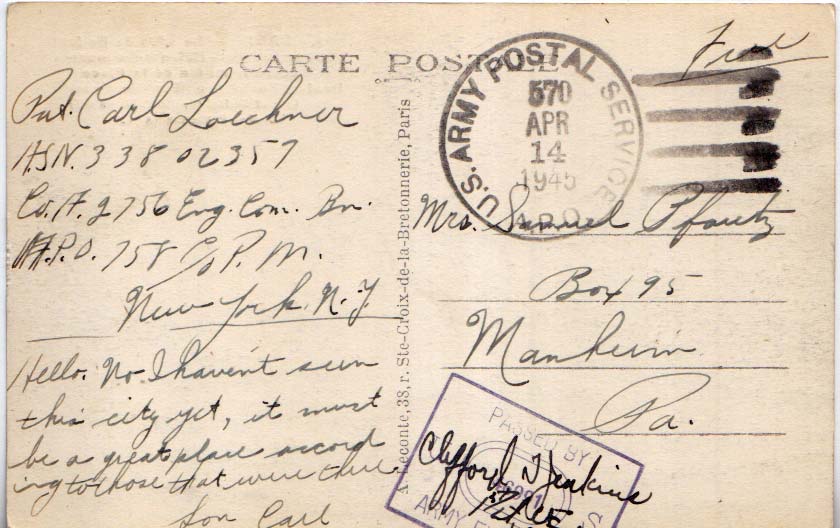 CARTE POSTALE
Free
U.S. ARMY POSTAL SERVICE
570
APR
14
1945
A.P.O.
Pvt. Carl Loechner
ASN. 33802357
Co. A. 2756 Eng. Com. Bn.
A.P.O. 758 c/o P. M.
New York. N. Y.
Hello. No. I havent seen
this city yet, it must
be a great place accord
ing to those that were there
Son Carl
A. Leconte, 38, r. Ste-Croix-de-la-Bretonnerie, Paris
Mrs. Samuel Pfautz
Box 95
Manheim
Pa.
PASSED BY
Clifford Jenkins
ARMY